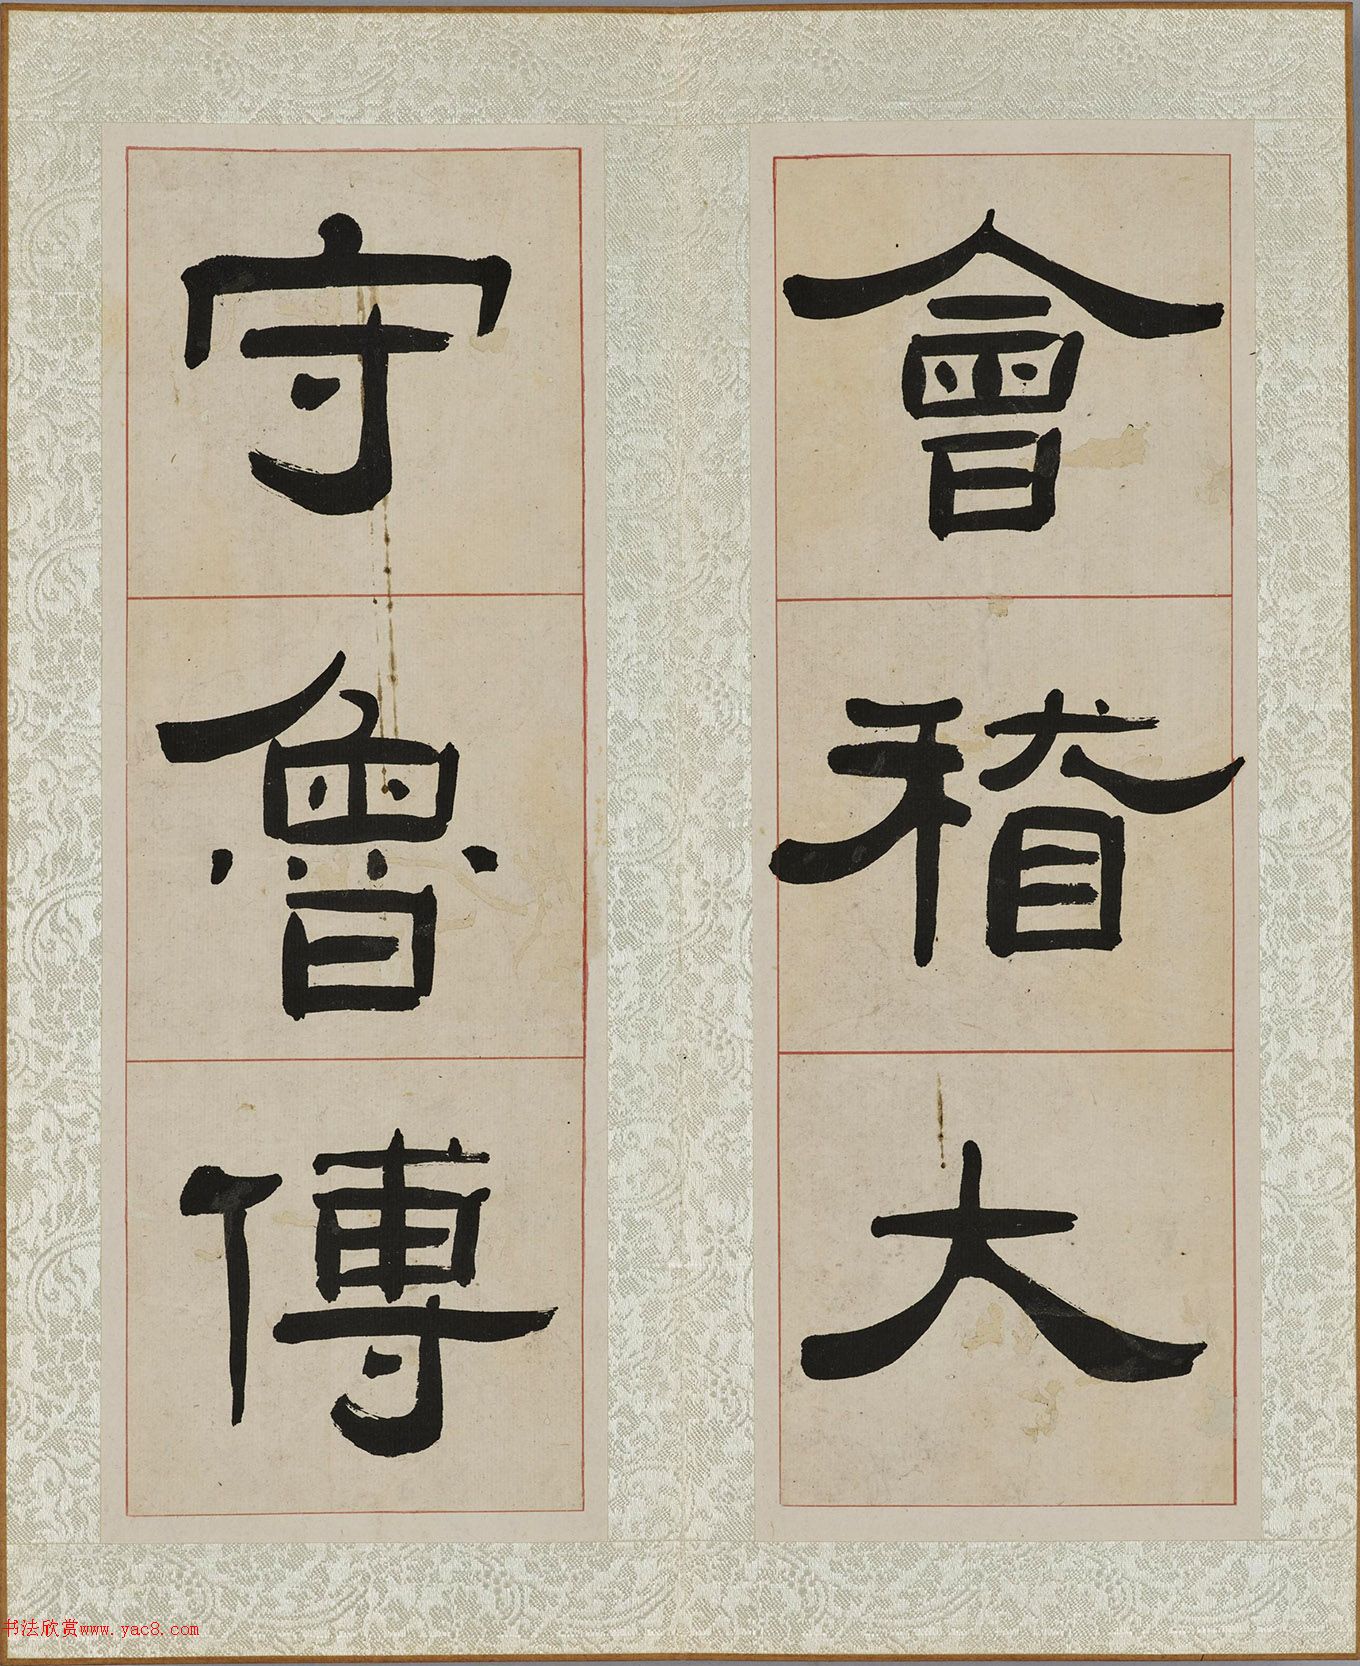 會稽大
守魯傅
书法欣赏www.yac8.com